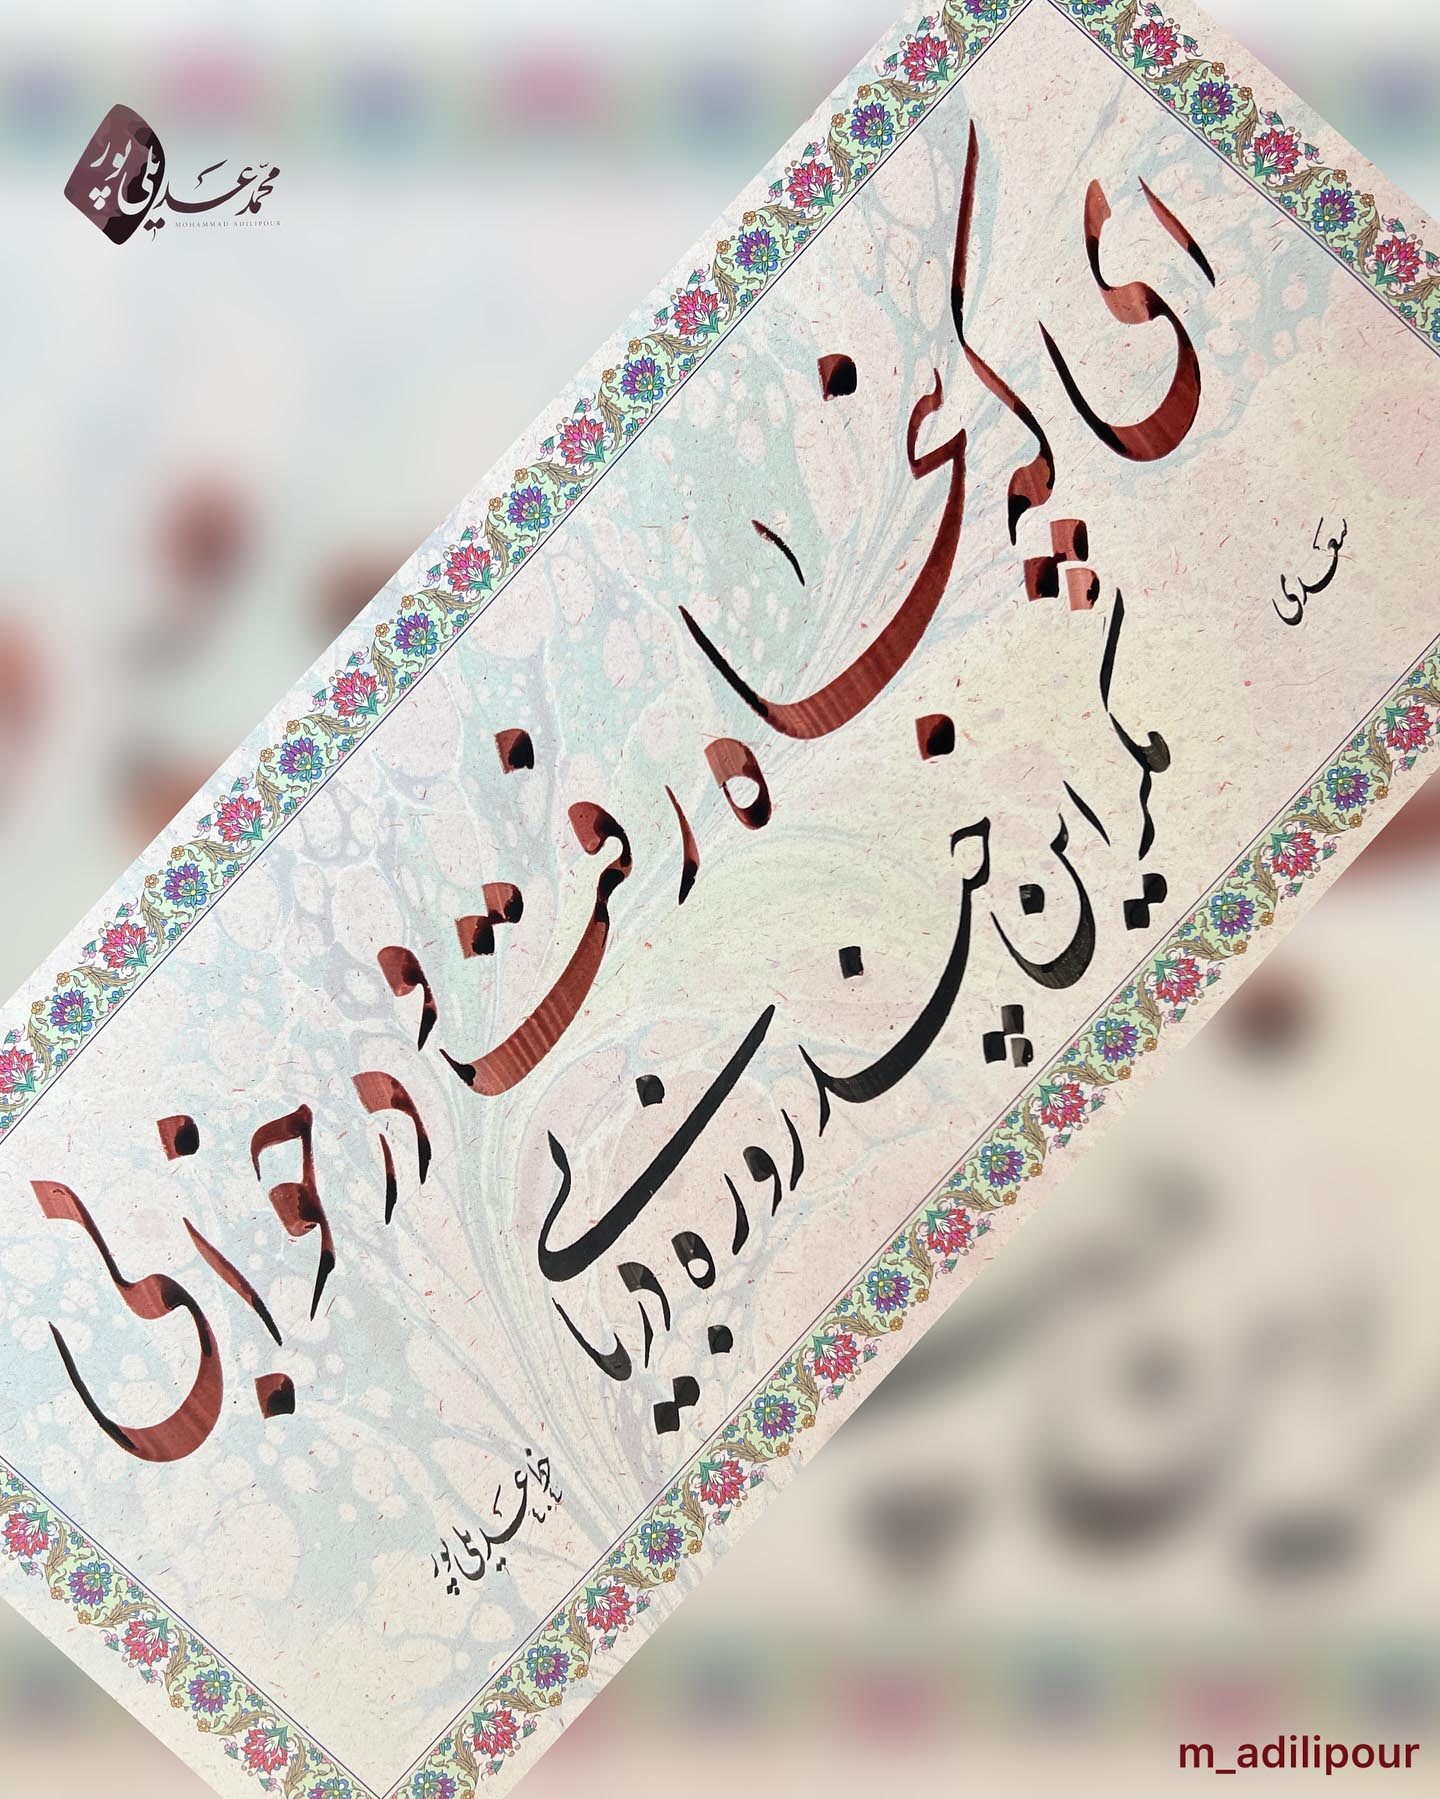 محمد عدیلی‌پور
MOHAMMAD ADILIPOUR
ای که پنجاه رفت و در خوابی
مگر این چند روزه دریابی
سعدی
خط عدیلی پور
۴۰۴
m_adilipour